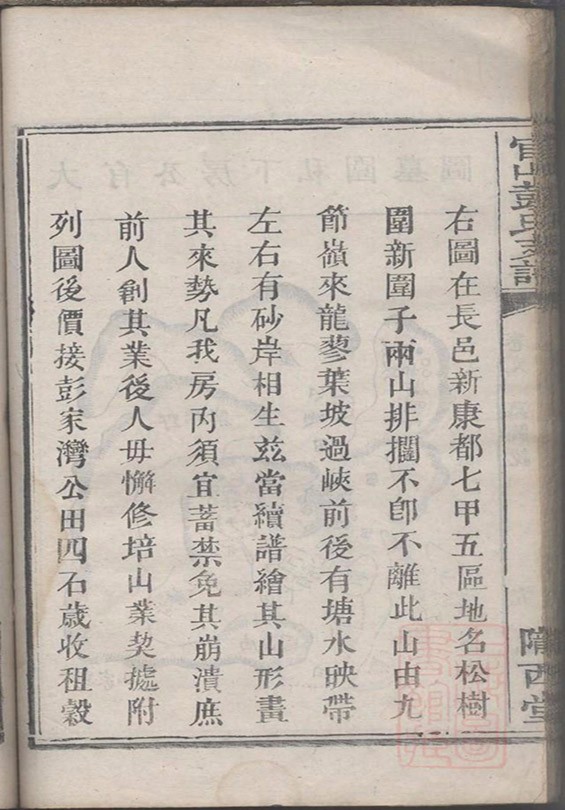 官山彭氏支譜
隴西堂
右圖在長邑新康都七甲五區地名松樹
圍新圍子兩山排擱不卽不離此山由九
節嶺來龍蓼葉坡過峽前後有塘水映帶
左右有砂岸相生玆當續譜繪其山形畫
其來勢凡我房內須宜蓄禁免其崩潰庶
前人創其業後人毋懈修培山業契據附
列圖後價接彭家灣公田四石歲收租穀